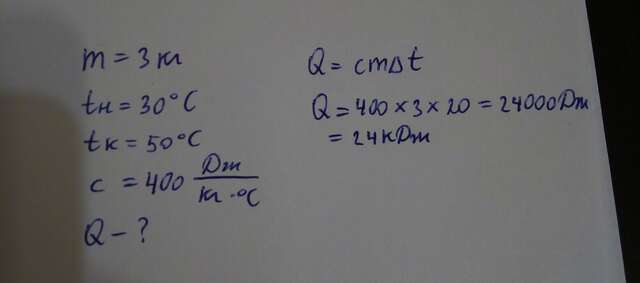 m = 3 кг
tн = 30°C
tк = 50°C
c = 400 Дж
кг · °C
Q – ?
Q = cmΔt
Q = 400 × 3 × 20 = 24000 Дж
= 24 кДж